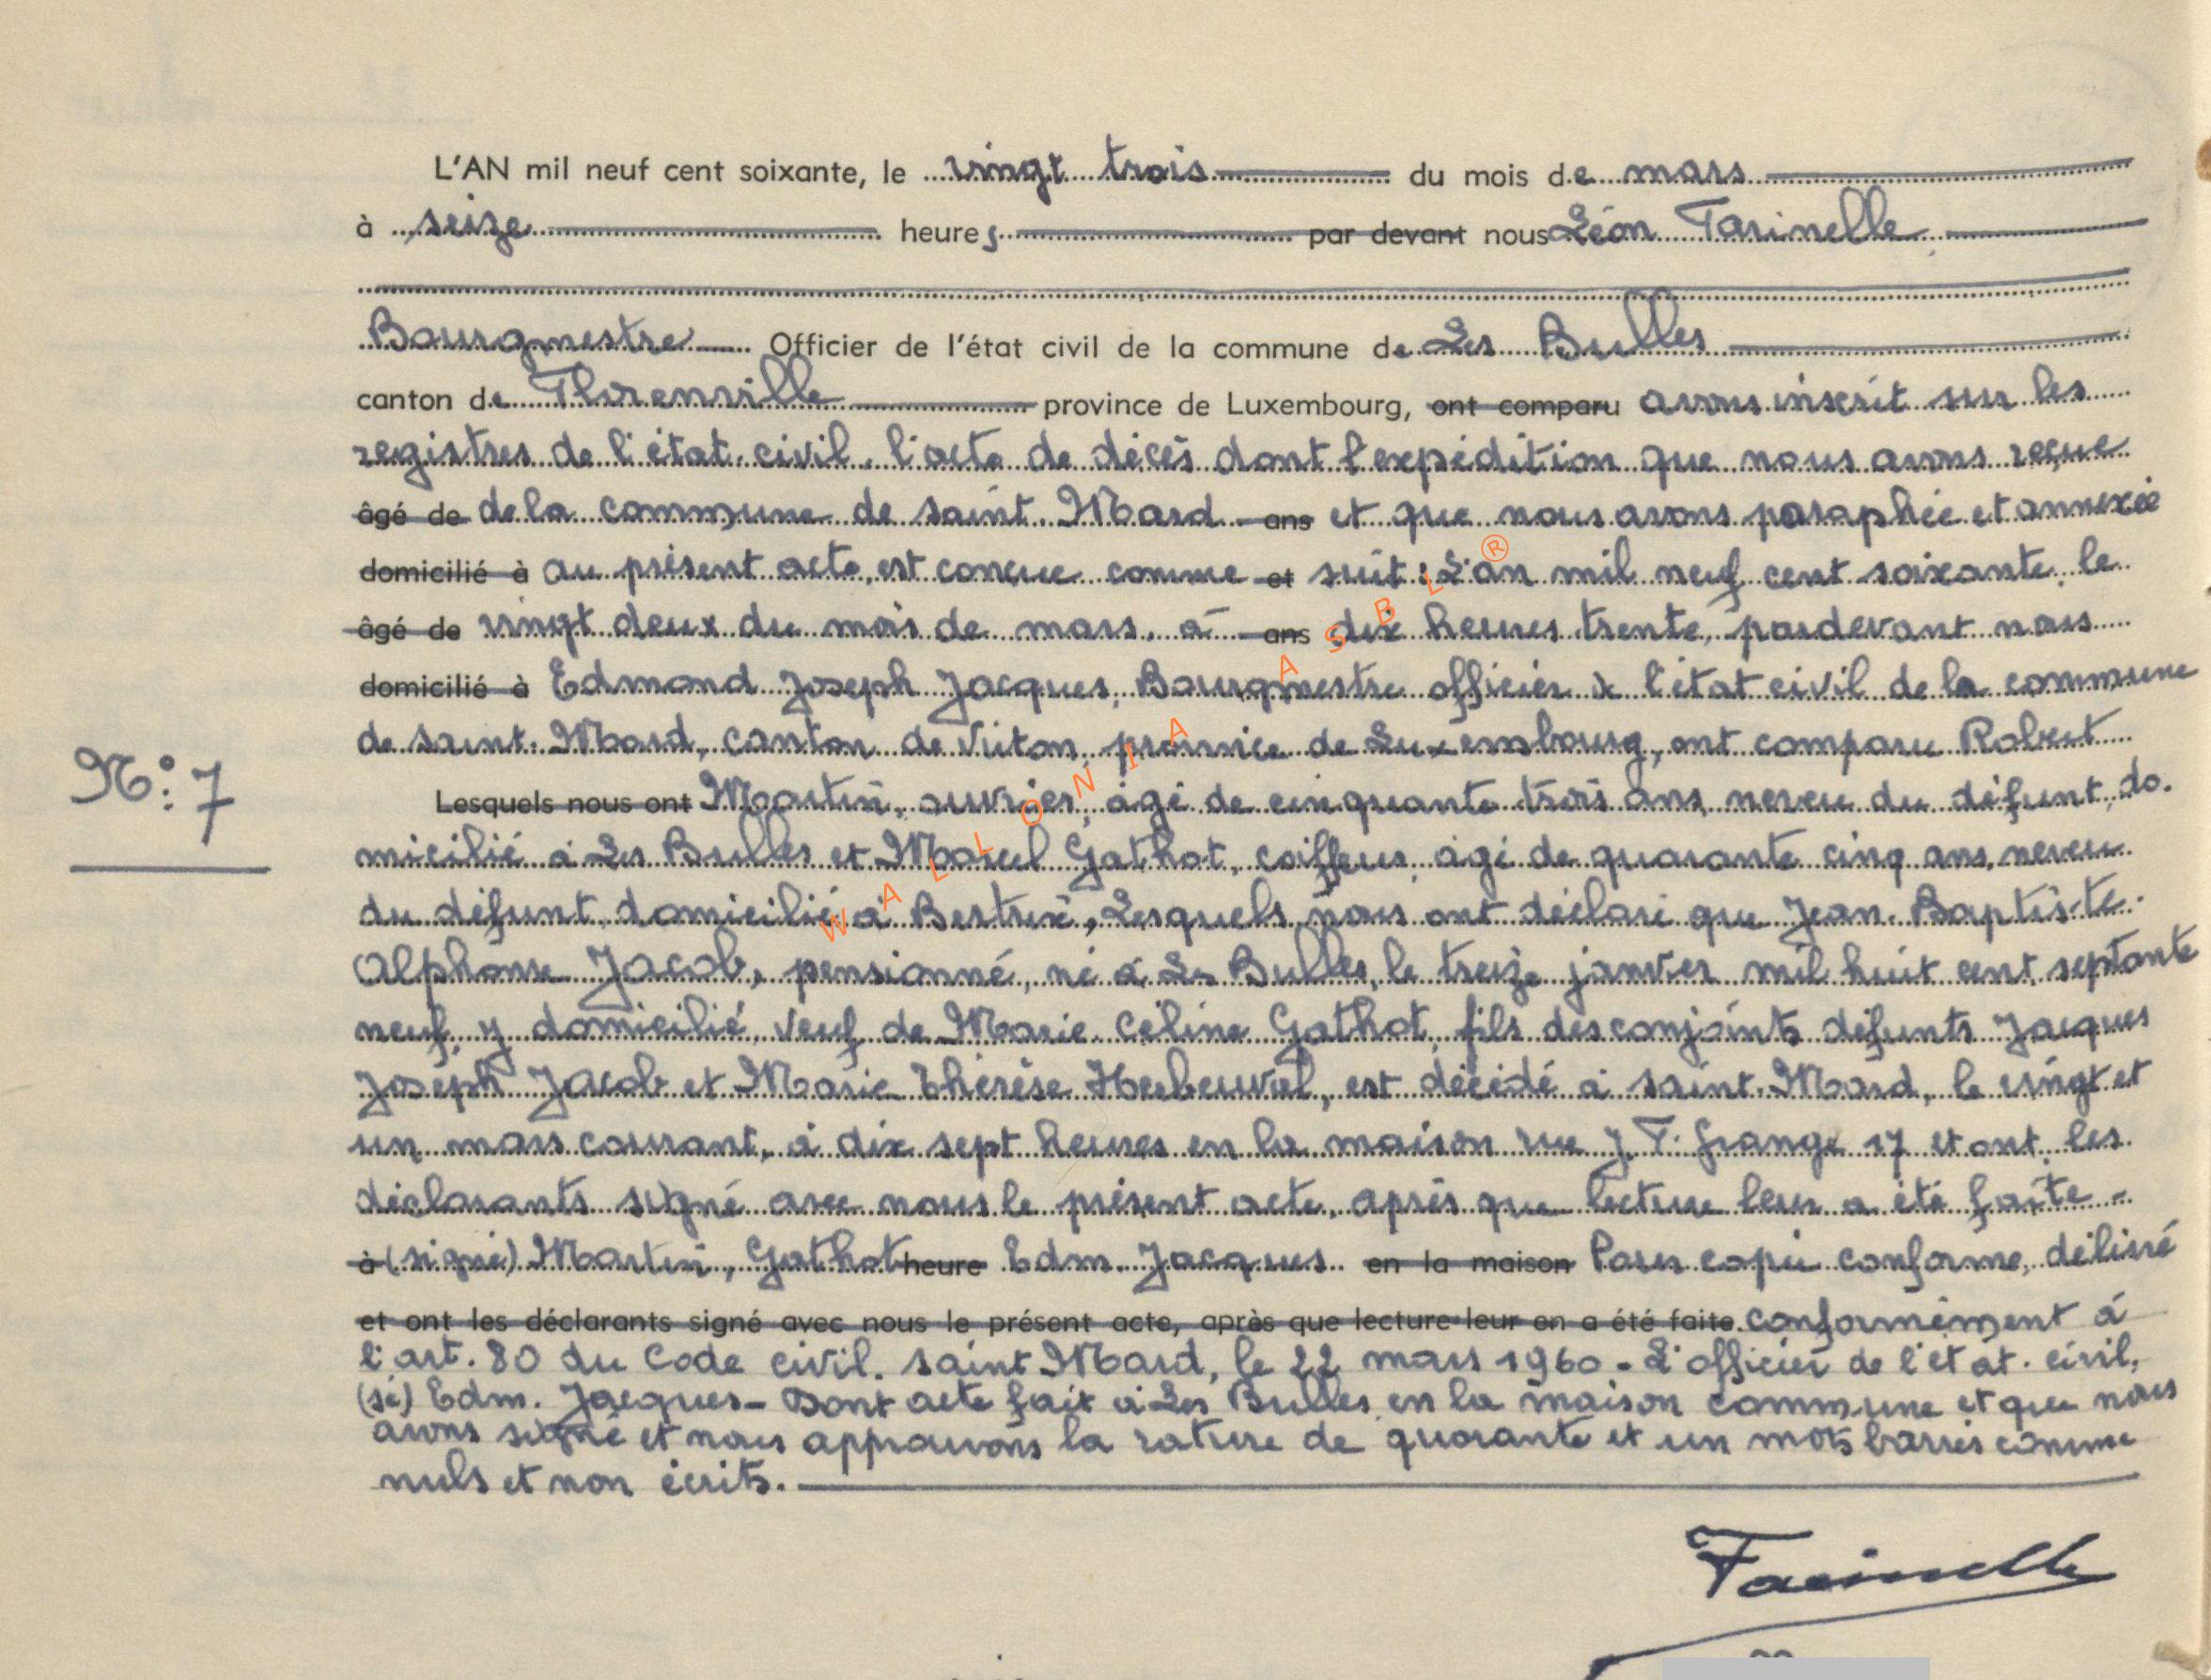 L'AN mil neuf cent soixante, le vingt trois du mois de mars
à seize heures par devant nous Léon Farinelle
Bourgmestre Officier de l'état civil de la commune de Les Bulles
canton de Florenville province de Luxembourg, ont comparu avons inscrit sur les
registres de l'état civil, l'acte de décès dont l'expédition que nous avons reçue
âgé de de la commune de Saint-Mard ans et que nous avons paraphée et annexée
domicilié à au présent acte, est conçue comme et suit : L'an mil neuf cent soixante, le
âgé de vingt deux du mois de mars, à ans dix heures trente, pardevant nous
domicilié à Edmond Joseph Jacques, Bourgmestre officier de l'état civil de la commune
de Saint-Mard, canton de Virton, province de Luxembourg, ont comparu Robert
N°: 7
Lesquels nous ont Martin, ouvrier, âgé de cinquante trois ans, neveu du défunt, do-
micilié à Les Bulles et Marcel Gathot, coiffeur, âgé de quarante cinq ans, neveu
du défunt, domicilié à Bertrix, Lesquels nous ont déclaré que Jean-Baptiste-
Alphonse Jacob, pensionné, né à Les Bulles, le treize janvier mil huit cent septante
neuf, y domicilié, veuf de Marie-Céline Gathot, fils des conjoints défunts Jacques
Joseph Jacob et Marie Thérèse Herbeuval, est décédé à Saint-Mard, le vingt et
un mars courant, à dix sept heures en la maison rue J. F. Grange 17 et ont les
déclarants signé avec nous le présent acte, après que lecture leur a été faite -
à (signé) Martin, Gathot heure Edm. Jacques en la maison Pour copie conforme, délivré
et ont les déclarants signé avec nous le présent acte, après que lecture leur en a été faite. conformément à
l'art. 80 du Code civil. Saint Mard, le 22 mars 1960 - L'officier de l'état-civil,
(sé) Edm. Jacques - Dont acte fait à Les Bulles, en la maison commune et que nous
avons signé et nous approuvons la rature de quarante et un mots barrés comme
nuls et non écrits.
Farinelle
WALLONIA ASBL ®